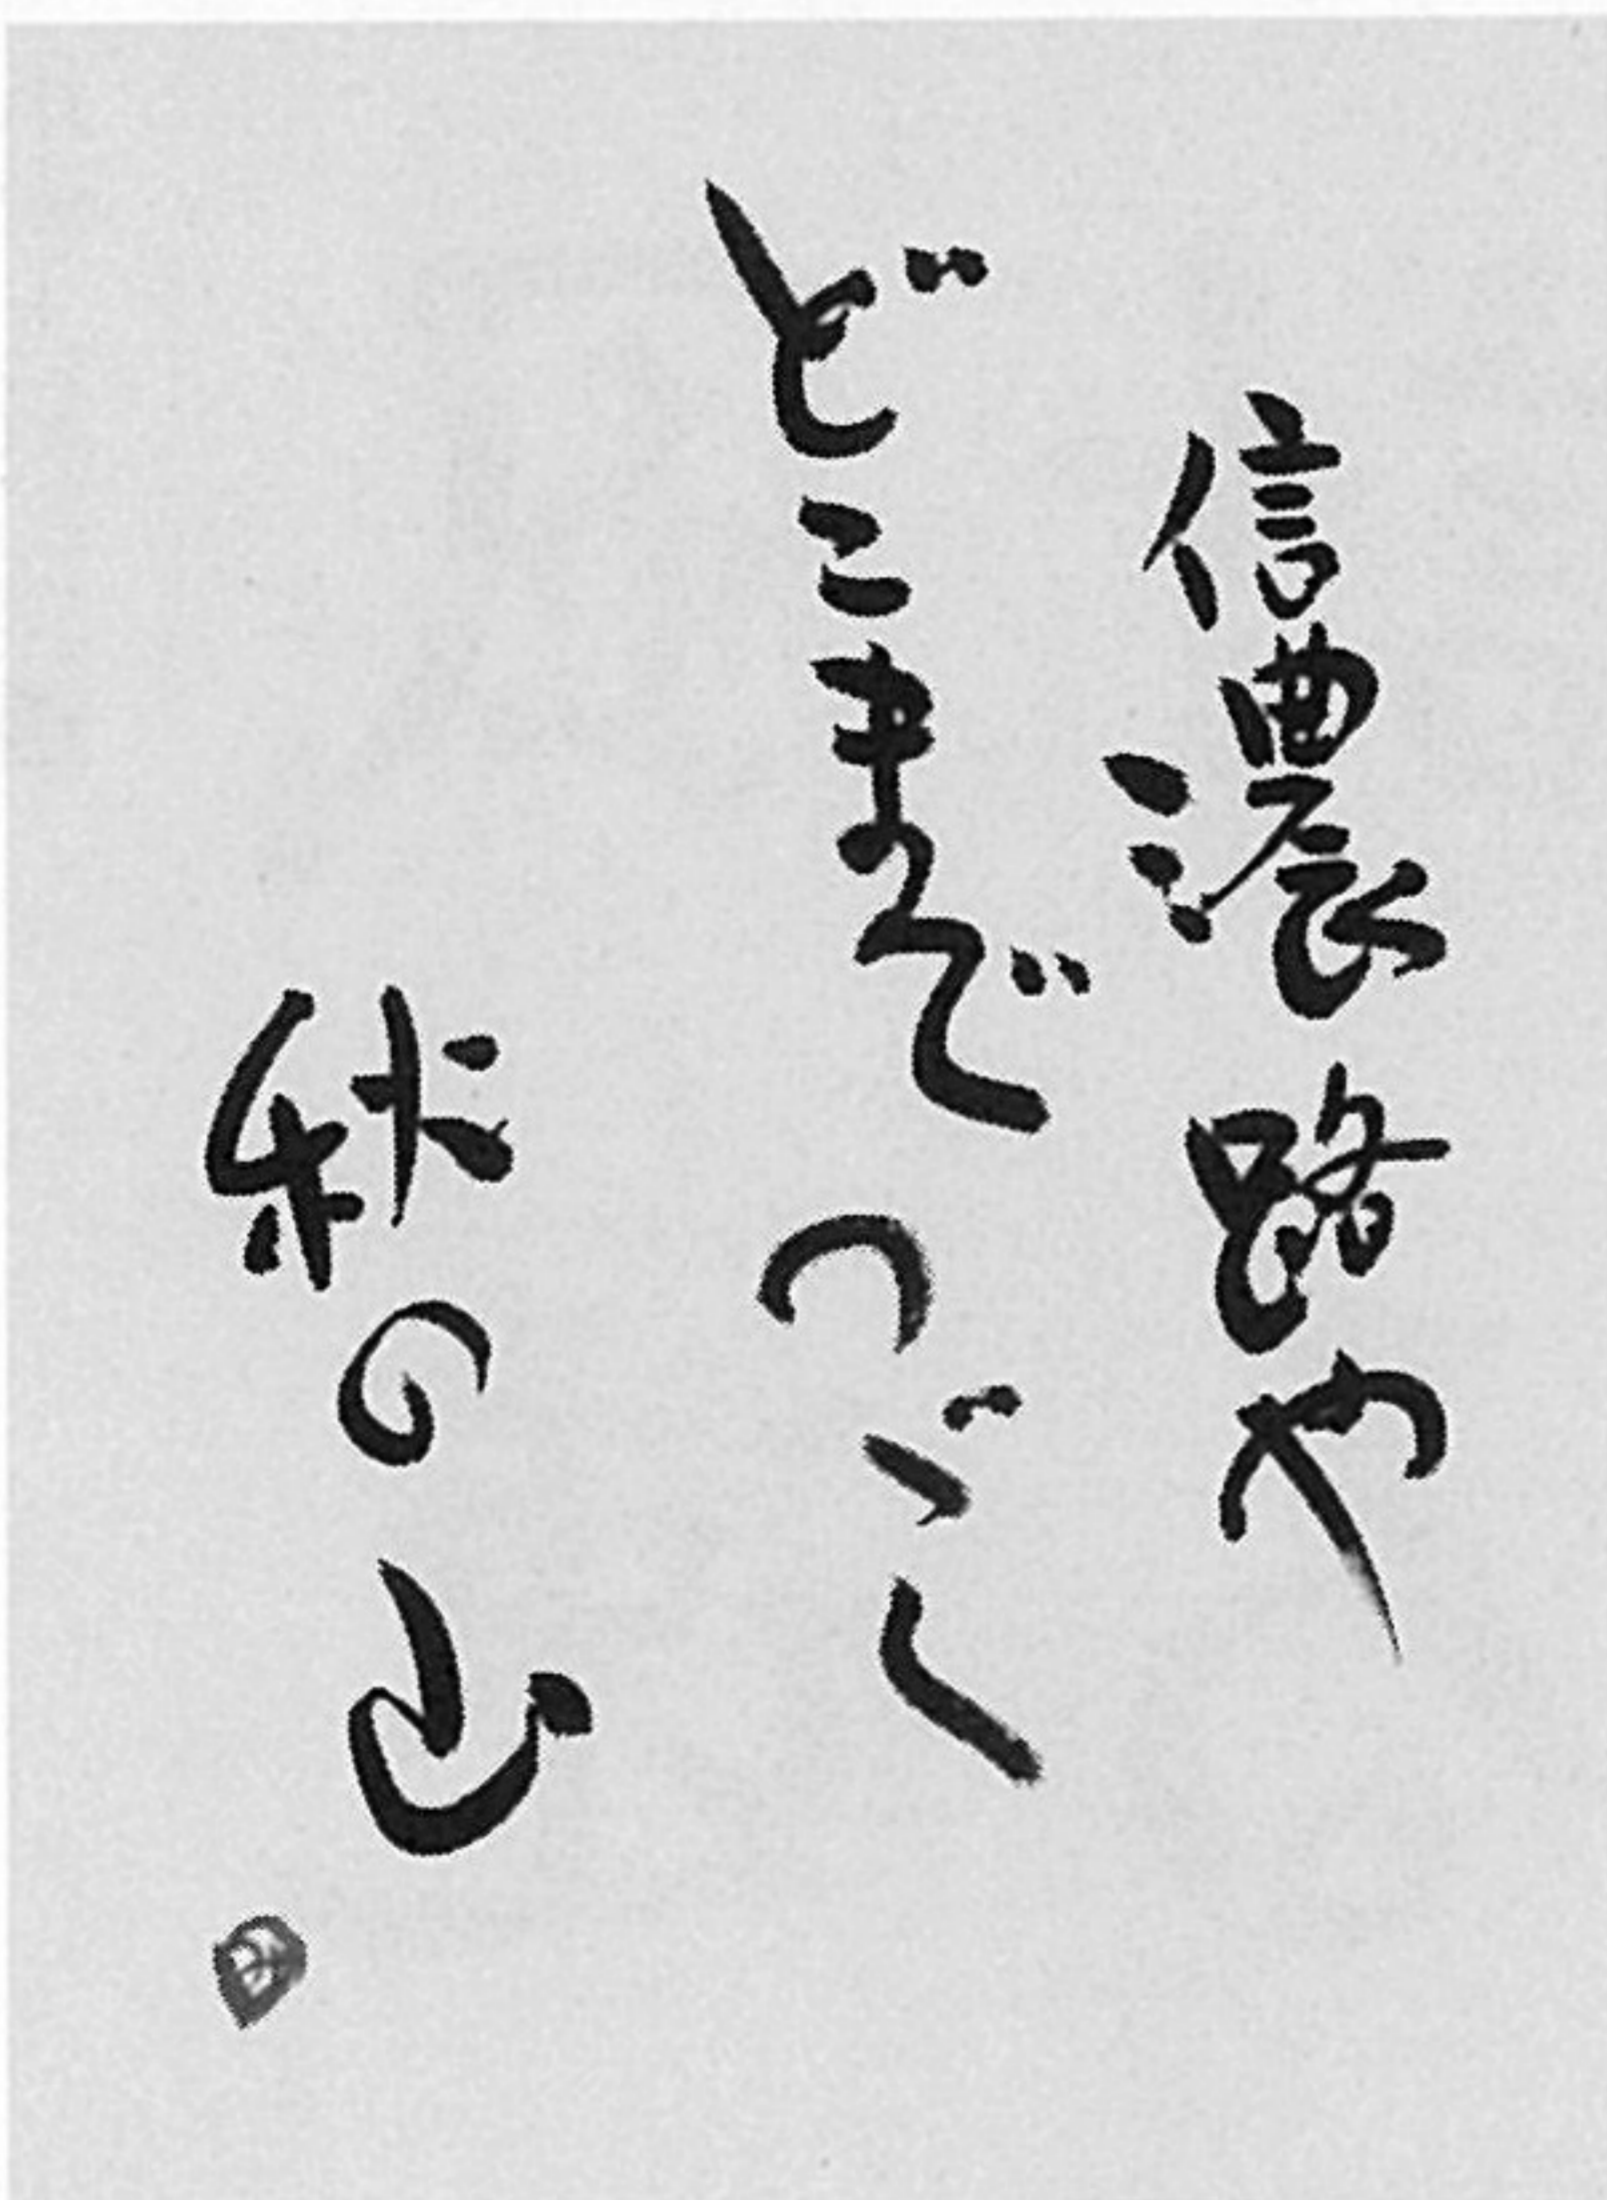 信濃路や
どこまでつゞく
秋の山